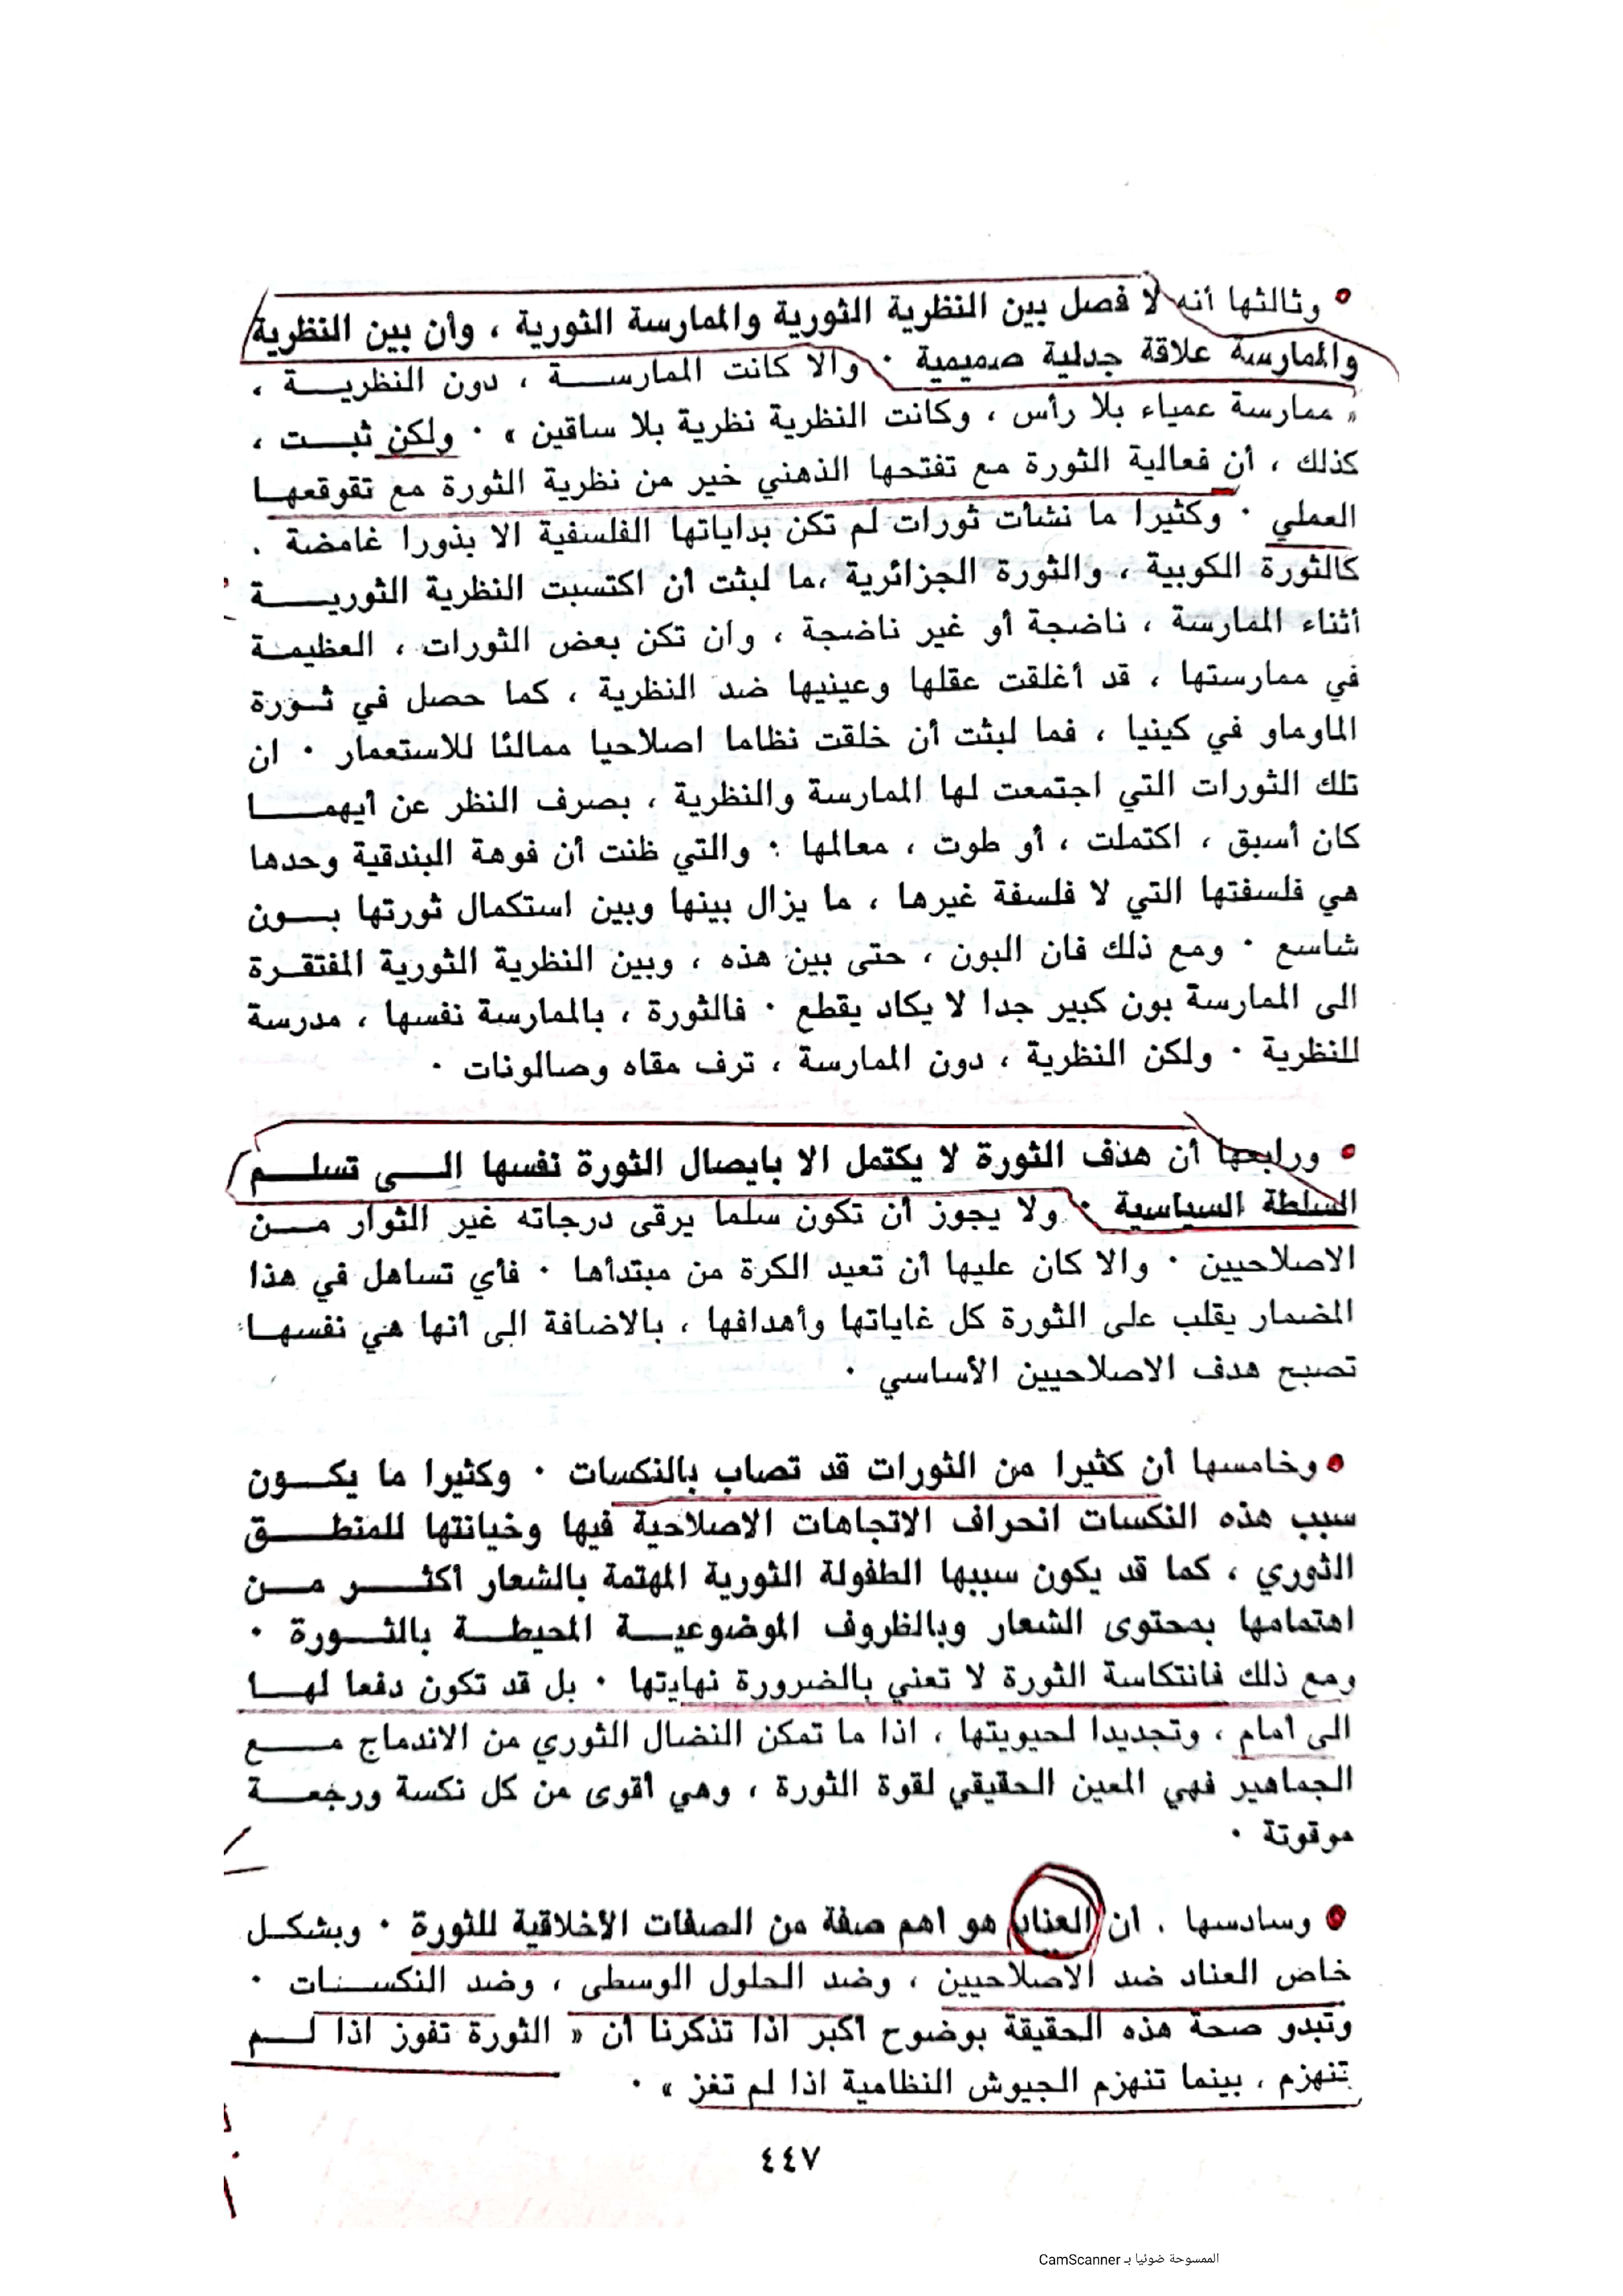 • وثالثها أنه لا فصل بين النظرية الثورية والممارسة الثورية ، وأن بين النظرية
والممارسة علاقة جدلية صميمية · والا كانت الممارســـة ، دون النظريـــة ،
« ممارسة عمياء بلا رأس ، وكانت النظرية نظرية بلا ساقين » · ولكن ثبـــت ،
كذلك ، أن فعالية الثورة مع تفتحها الذهني خير من نظرية الثورة مع تقوقعهـا
العملي · وكثيرا ما نشأت ثورات لم تكن بداياتها الفلسفية الا بذورا غامضة .
كالثورة الكوبية ، والثورة الجزائرية ،ما لبثت أن اكتسبت النظرية الثوريـــة
أثناء الممارسة ، ناضجة أو غير ناضجة ، وان تكن بعض الثورات ، العظيمـة
في ممارستها ، قد أغلقت عقلها وعينيها ضد النظرية ، كما حصل في ثـورة
الماوماو في كينيا ، فما لبثت أن خلقت نظاما اصلاحيا ممالئا للاستعمار · ان
تلك الثورات التي اجتمعت لها الممارسة والنظرية ، بصرف النظر عن أيهمـــا
كان أسبق ، اكتملت ، أو طوت ، معالمها : والتي ظنت أن فوهة البندقية وحدها
هي فلسفتها التي لا فلسفة غيرها ، ما يزال بينها وبين استكمال ثورتها بـــون
شاسع · ومع ذلك فان البون ، حتى بين هذه ، وبين النظرية الثورية المفتقـرة
الى الممارسة بون كبير جدا لا يكاد يقطع · فالثورة ، بالممارسة نفسها ، مدرسة
للنظرية · ولكن النظرية ، دون الممارسة ، ترف مقاه وصالونات ·
• ورابعها أن هدف الثورة لا يكتمل الا بايصال الثورة نفسها الـــى تسلـــم
السلطة السياسية · ولا يجوز أن تكون سلما يرقى درجاته غير الثوار مـــن
الاصلاحيين · والا كان عليها أن تعيد الكرة من مبتدأها · فأي تساهل في هذا
المضمار يقلب على الثورة كل غاياتها وأهدافها ، بالاضافة الى أنها هي نفسهـا
تصبح هدف الاصلاحيين الأساسي ·
• وخامسها أن كثيرا من الثورات قد تصاب بالنكسات · وكثيرا ما يكـــون
سبب هذه النكسات انحراف الاتجاهات الاصلاحية فيها وخيانتها للمنطـــق
الثوري ، كما قد يكون سببها الطفولة الثورية المهتمة بالشعار أكثـــر مـــن
اهتمامها بمحتوى الشعار وبالظروف الموضوعيـــة المحيطـــة بالثـــورة ·
ومع ذلك فانتكاسة الثورة لا تعني بالضرورة نهايتها · بل قد تكون دفعا لهـــا
الى أمام ، وتجديدا لحيويتها ، اذا ما تمكن النضال الثوري من الاندماج مـــع
الجماهير فهي المعين الحقيقي لقوة الثورة ، وهي أقوى من كل نكسة ورجعـــة
موقوتة ·
• وسادسها . ان العناد هو أهم صفة من الصفات الأخلاقية للثورة · وبشكـل
خاص العناد ضد الاصلاحيين ، وضد الحلول الوسطى ، وضد النكســات ·
وتبدو صحة هذه الحقيقة بوضوح أكبر اذا تذكرنا أن « الثورة تفوز اذا لـــم
تنهزم ، بينما تنهزم الجيوش النظامية اذا لم تفز » ·
٤٤٧
الممسوحة ضوئيا بـ CamScanner